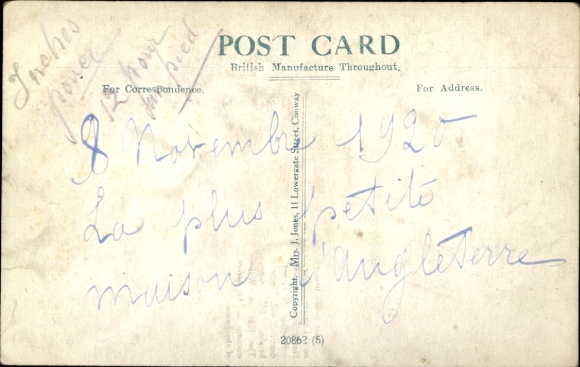 Inches
pouce
12 pour
un pied
POST CARD
British Manufacture Throughout.
For Correspondence.
For Address.
8 Novembre 1920
La plus petite
maison d'Angleterre
Copyright.—Mrs. J. Jones, 11 Lowergate Street, Conway
20862 (5)